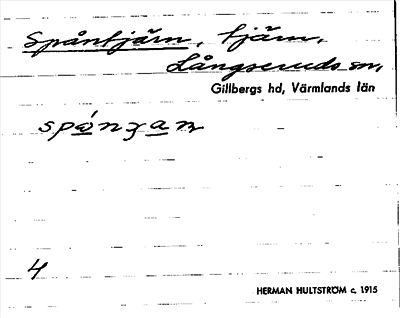 Spåntjärn, tjärn,
Långseruds sn,
Gillbergs hd, Värmlands län
spánʒan
4
HERMAN HULTSTRÖM c. 1915